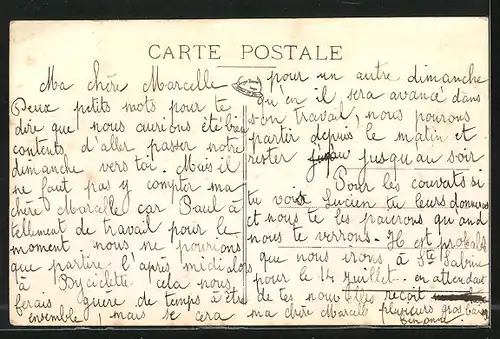 CARTE POSTALE
Ma chère Marcelle
Deux petits mots pour te
dire que nous aurions été bien
contents d'aller passer notre
dimanche vers toi. Mais il
ne faut pas y compter ma
chère Marcelle car Paul à
tellement de travail pour le
moment. nous ne pourrions
que partire l'après midi alors
à Bycéclette cela nous
ferais guère de temps à être
ensemble, mais se cera
pour un autre dimanche
qu'en il sera avancé dans
son travail, nous pourons
partir depuis le matin et
rester jusqu'au soir
Pour les couverts si
tu vois Lucien tu leurs donneras
et nous te les pairons qu'and
nous te verrons. Il est probable
que nous irons à Ste Sabine
pour le 14 Juillet. en attendant
de tes nouvelles reçoit
ma chère Marcelle plusieurs gros baisers